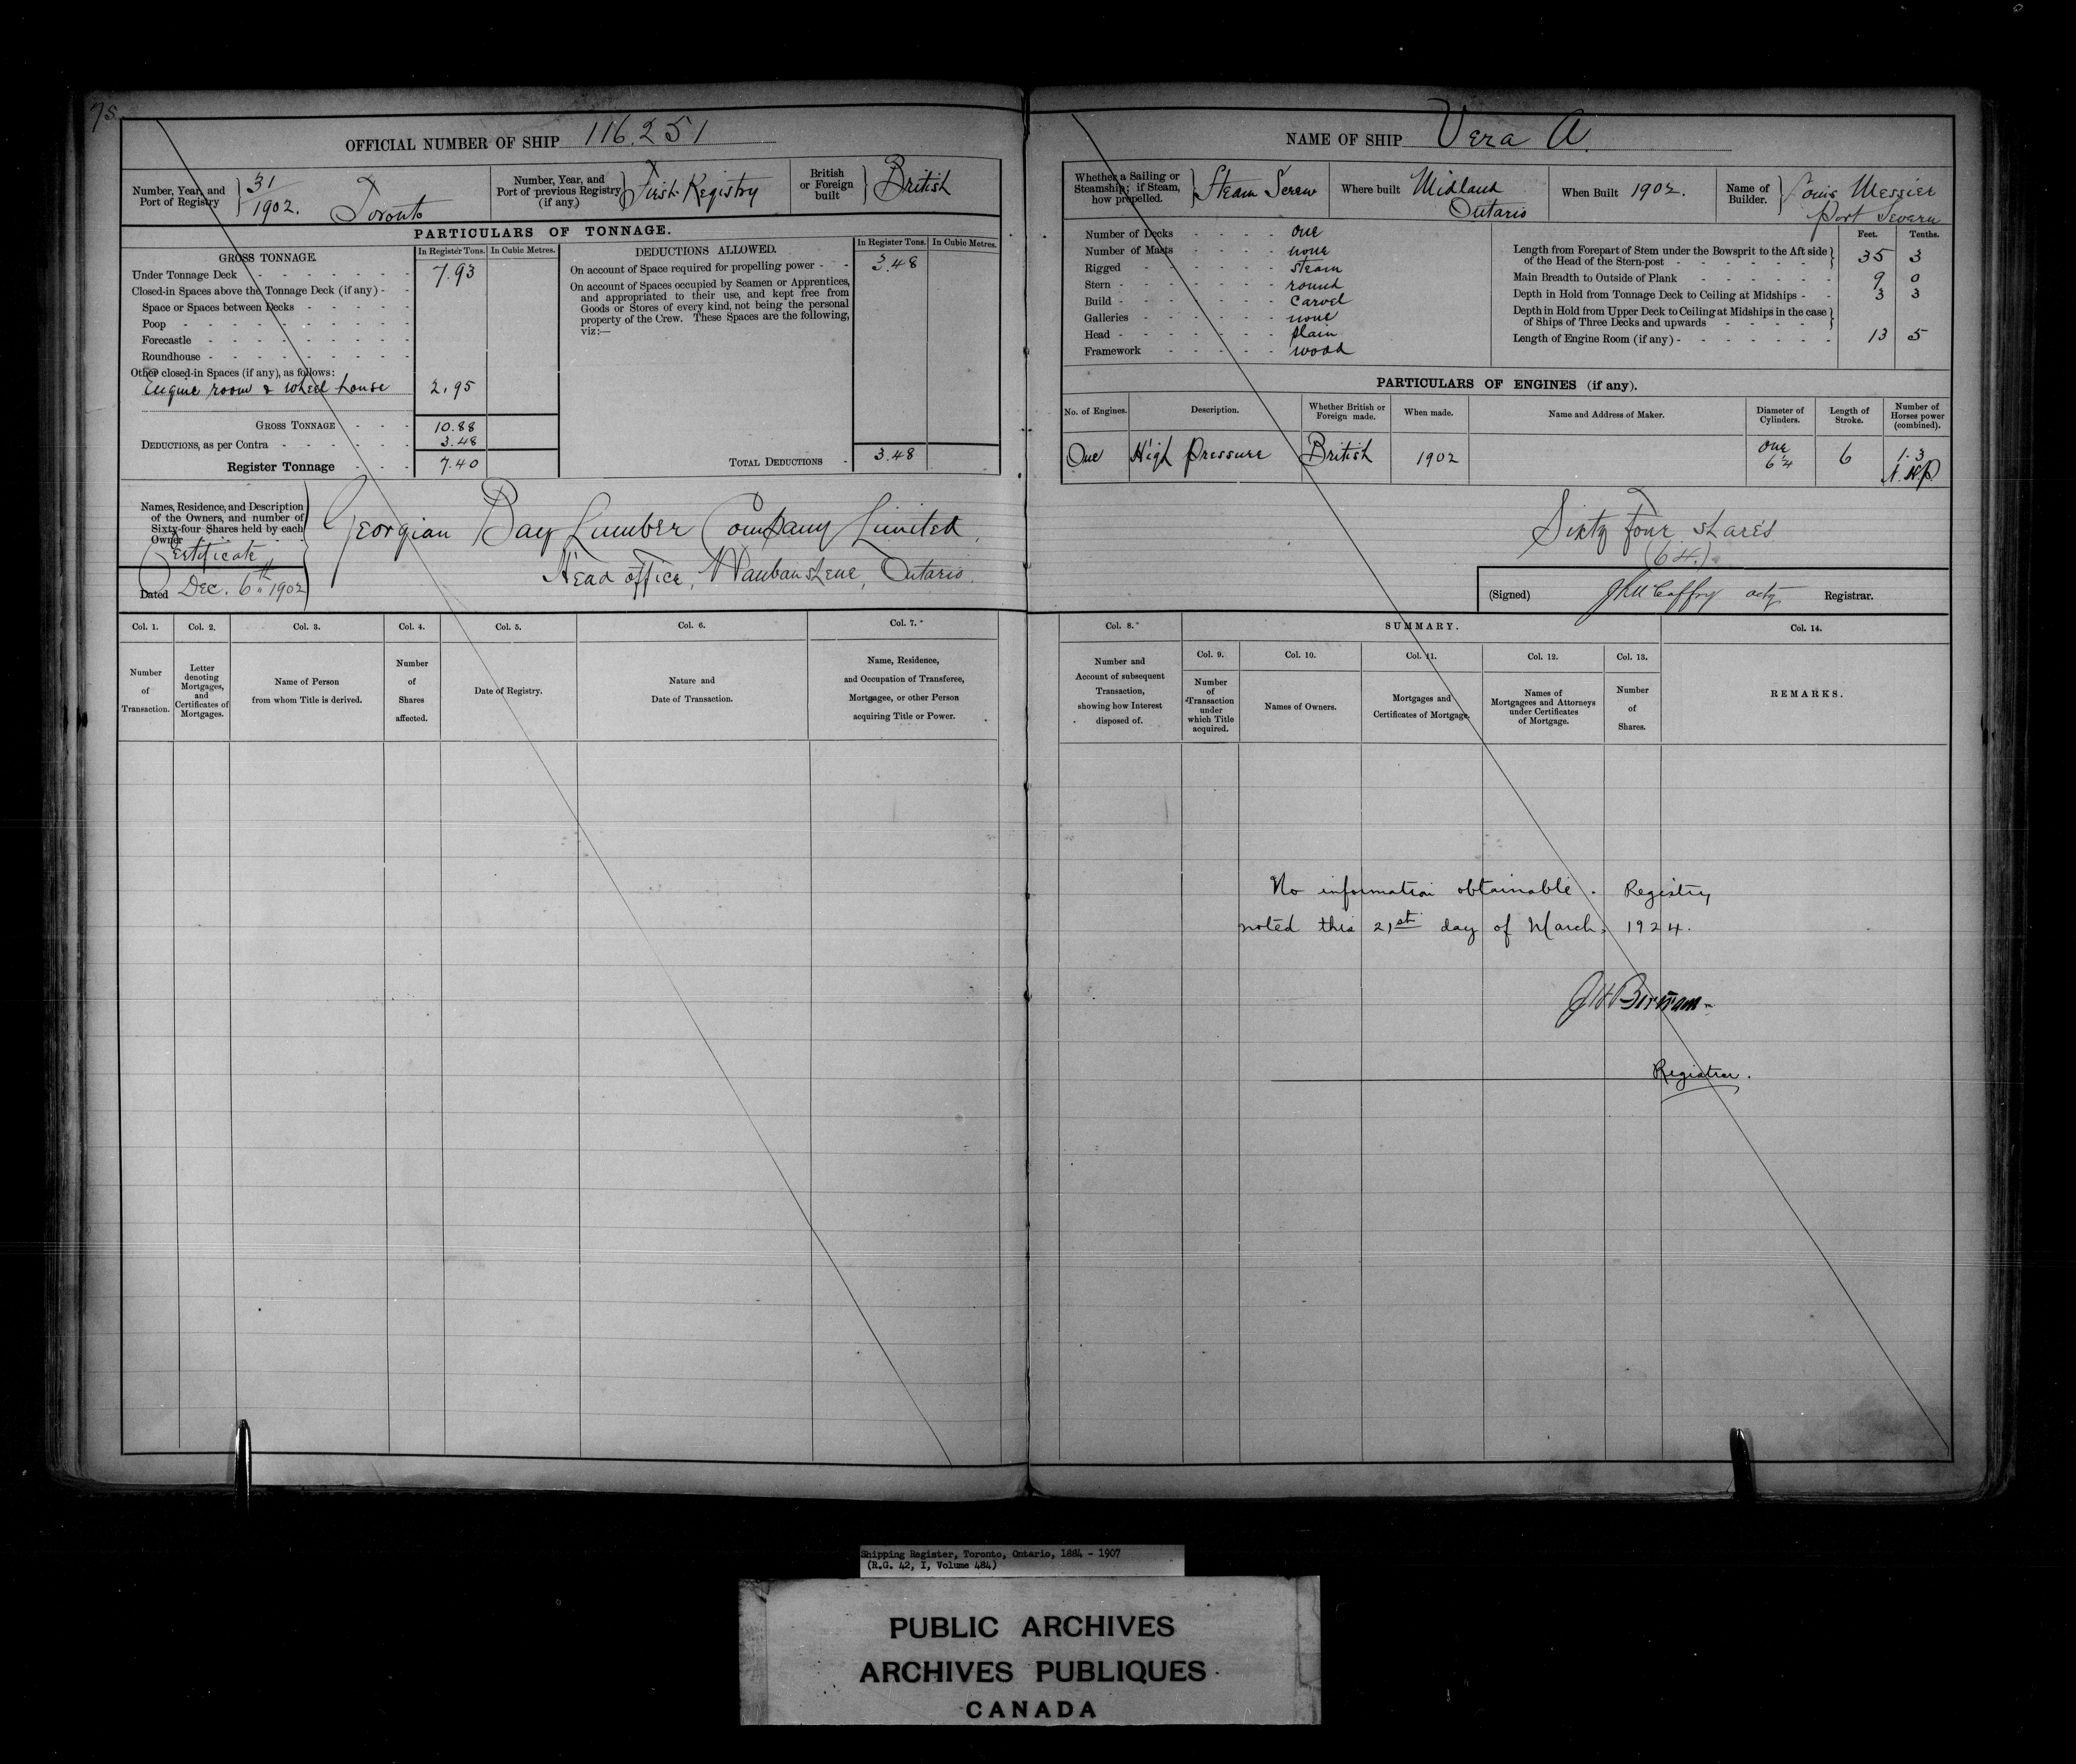 75
OFFICIAL NUMBER OF SHIP 116.251
Number, Year, and Port of Registry } 31/1902. Toronto
Number, Year, and Port of previous Registry (if any) } First Registry
British or Foreign built } British
PARTICULARS OF TONNAGE.
GROSS TONNAGE. In Register Tons. In Cubic Metres.
Under Tonnage Deck - - - - - - - 7.93
Closed-in Spaces above the Tonnage Deck (if any) - -
Space or Spaces between Decks - - - - -
Poop - - - - - - - - - -
Forecastle - - - - - - - - -
Roundhouse - - - - - - - - -
Other closed-in Spaces (if any), as follows:
Engine room & wheel house 2.95
GROSS TONNAGE - - - 10.88
DEDUCTIONS, as per Contra - - - - - 3.48
Register Tonnage - - - 7.40
DEDUCTIONS ALLOWED. In Register Tons. In Cubic Metres.
On account of Space required for propelling power - - 3.48
On account of Spaces occupied by Seamen or Apprentices,
and appropriated to their use, and kept free from
Goods or Stores of every kind, not being the personal
property of the Crew. These Spaces are the following,
viz:—
TOTAL DEDUCTIONS - 3.48
Names, Residence, and Description
of the Owners, and number of
Sixty-four Shares held by each
Owner
Certificate
Dated Dec. 6th 1902
Georgian Bay Lumber Company Limited,
Head office, Waubaushene, Ontario.
Col. 1. Col. 2. Col. 3. Col. 4. Col. 5. Col. 6. Col. 7.
Number of Transaction.
Letter denoting Mortgages, and Certificates of Mortgages.
Name of Person from whom Title is derived.
Number of Shares affected.
Date of Registry.
Nature and Date of Transaction.
Name, Residence, and Occupation of Transferee, Mortgagee, or other Person acquiring Title or Power.
NAME OF SHIP Vera A.
Whether a Sailing or Steamship; if Steam, how propelled. } Steam Screw
Where built Midland Ontario
When Built 1902.
Name of Builder. } Louis Messier Port Severn
Number of Decks - - - - one
Number of Masts - - - - none
Rigged - - - - - - steam
Stern - - - - - - - round
Build - - - - - - - carvel
Galleries - - - - - none
Head - - - - - - - plain
Framework - - - - - wood
Feet. Tenths.
Length from Forepart of Stem under the Bowsprit to the Aft side
of the Head of the Stern-post - - - - - - } 35 3
Main Breadth to Outside of Plank - - - - - - 9 0
Depth in Hold from Tonnage Deck to Ceiling at Midships - - 3 3
Depth in Hold from Upper Deck to Ceiling at Midships in the case
of Ships of Three Decks and upwards - - - - - }
Length of Engine Room (if any) - - - - - - - 13 5
PARTICULARS OF ENGINES (if any).
No. of Engines. Description. Whether British or Foreign made. When made. Name and Address of Maker. Diameter of Cylinders. Length of Stroke. Number of Horses power (combined).
One High Pressure British 1902 one 6¼ 6 1.3 N.H.P.
Sixty four shares
(64.)
(Signed) acty Registrar.
Col. 8. SUMMARY. Col. 14.
Col. 9. Col. 10. Col. 11. Col. 12. Col. 13.
Number and Account of subsequent Transaction, showing how Interest disposed of.
Number of Transaction under which Title acquired.
Names of Owners.
Mortgages and Certificates of Mortgage.
Names of Mortgagees and Attorneys under Certificates of Mortgage.
Number of Shares.
REMARKS.
No information obtainable. Registry
noted this 21st day of March, 1924.
Registrar.
Shipping Register, Toronto, Ontario, 1884 - 1907
(R.G. 42, I, Volume 484)
PUBLIC ARCHIVES
ARCHIVES PUBLIQUES
CANADA